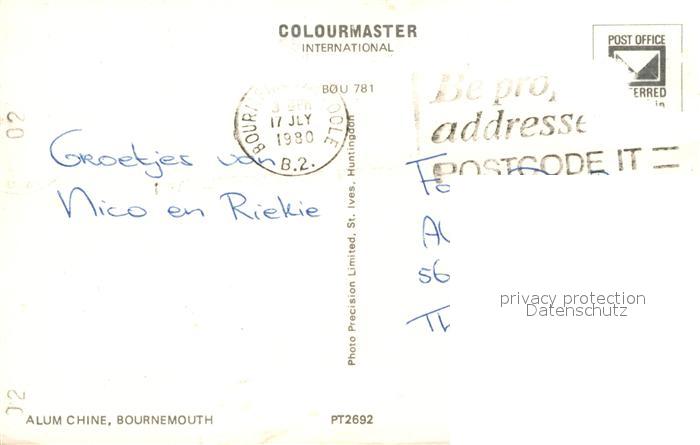 COLOURMASTER
INTERNATIONAL
POST OFFICE
BOU 781
17 JLY
1980
B.2.
addresse
POSTCODE IT
Groetjes van
Nico en Riekie
Photo Precision Limited, St. Ives, Huntingdon
56
privacy protection
Datenschutz
02
ALUM CHINE, BOURNEMOUTH
PT2692